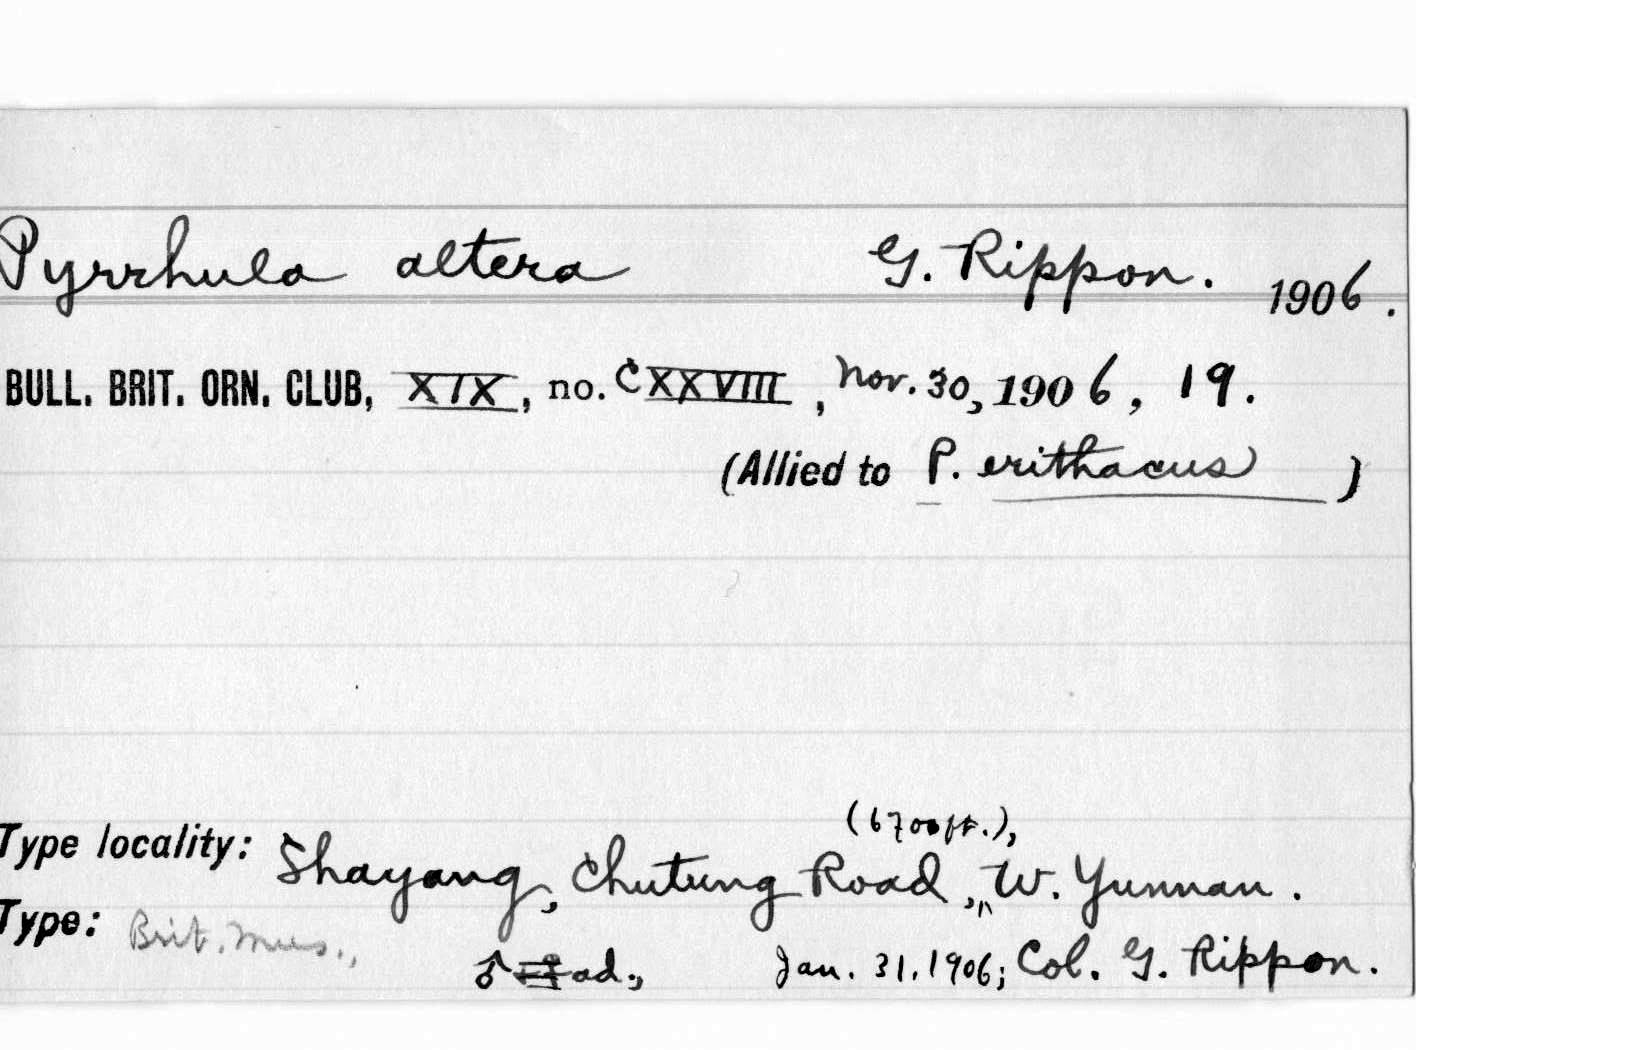 Pyrrhula altera G. Rippon. 1906.
BULL. BRIT. ORN. CLUB, XIX, no. CXXVIII, Nov. 30, 1906, 19.
(Allied to P. erithacus)
(6700 ft.),
Type locality: Shayang, Chutung Road, W. Yunnan.
Type: Brit. Mus.,
♂ ad., Jan. 31, 1906; Col. G. Rippon.